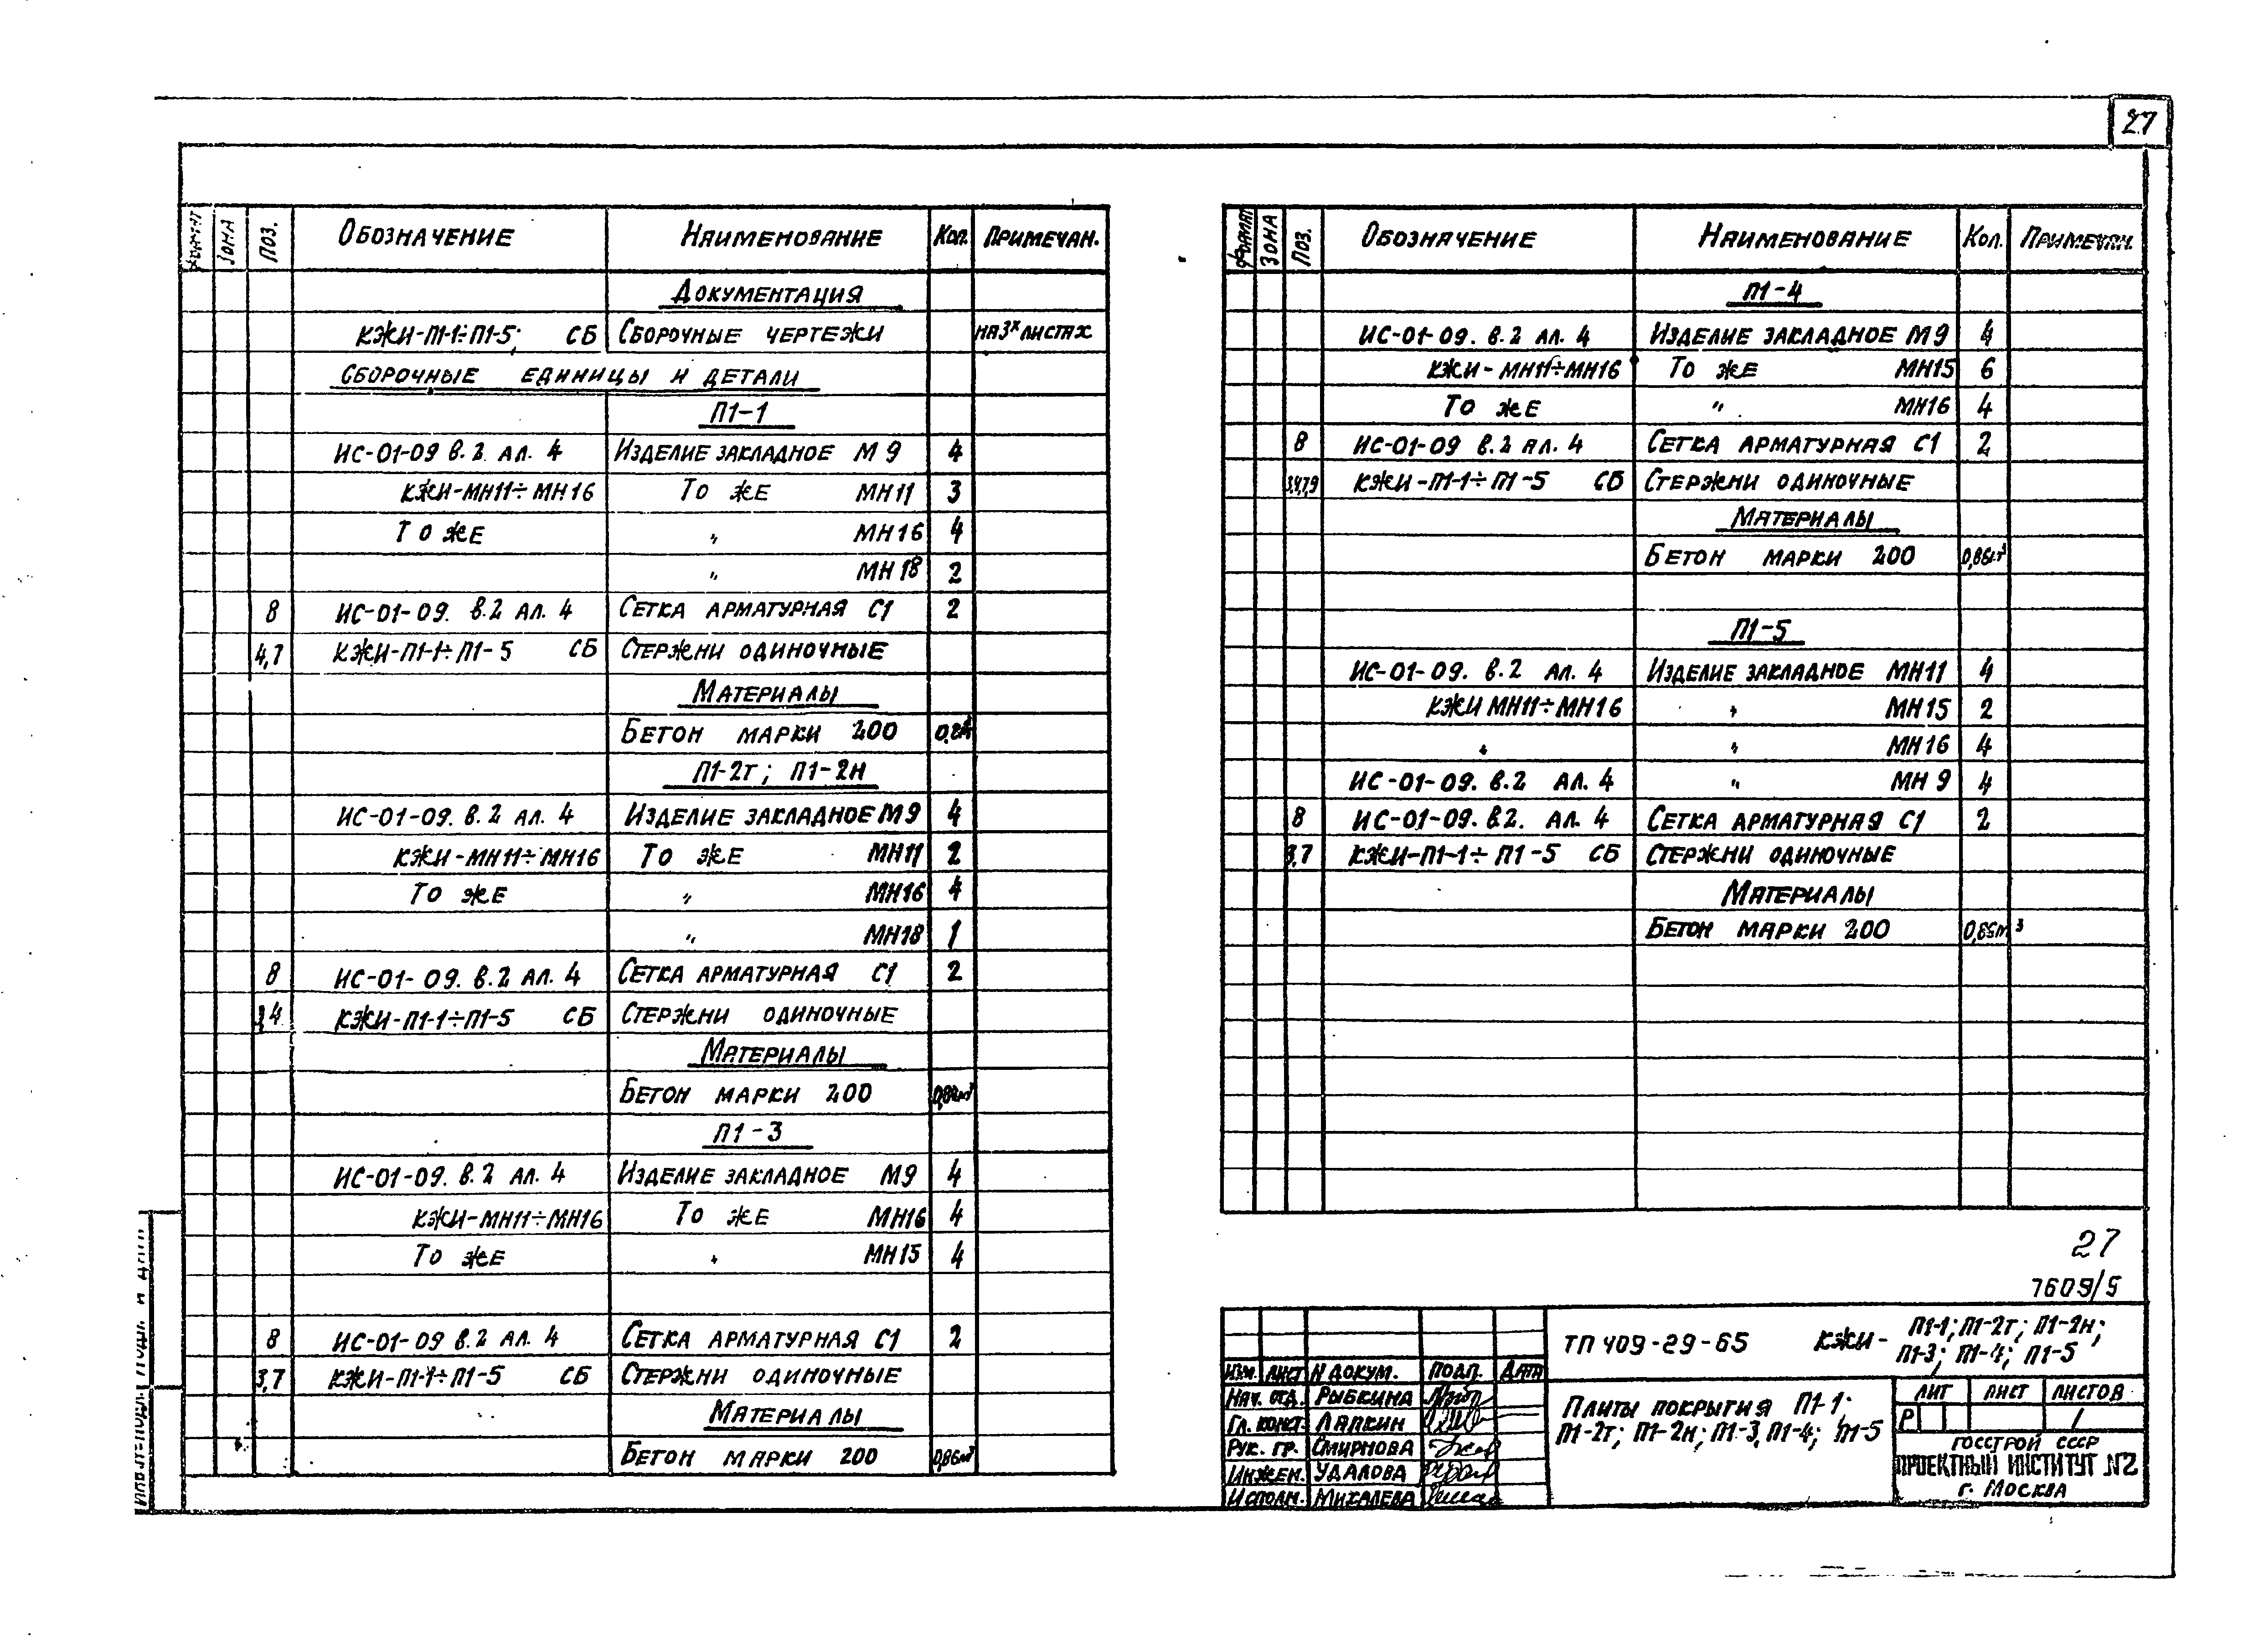 27
ФОРМАТ ЗОНА ПОЗ. ОБОЗНАЧЕНИЕ НАИМЕНОВАНИЕ КОЛ. ПРИМЕЧАН.
ДОКУМЕНТАЦИЯ
КЖИ-П1-1÷П1-5; СБ СБОРОЧНЫЕ ЧЕРТЕЖИ НА 3х ЛИСТАХ
СБОРОЧНЫЕ ЕДИНИЦЫ И ДЕТАЛИ
П1-1
ИС-01-09 В.2 АЛ. 4 ИЗДЕЛИЕ ЗАКЛАДНОЕ М 9 4
КЖИ-МН11÷МН16 ТО ЖЕ МН11 3
ТО ЖЕ " МН16 4
" МН18 2
8 ИС-01-09. В.2 АЛ. 4 СЕТКА АРМАТУРНАЯ С1 2
4,7 КЖИ-П1-1÷П1-5 СБ СТЕРЖНИ ОДИНОЧНЫЕ
МАТЕРИАЛЫ
БЕТОН МАРКИ 200
П1-2т; П1-2н
ИС-01-09. В.2 АЛ. 4 ИЗДЕЛИЕ ЗАКЛАДНОЕ М9 4
КЖИ-МН11÷МН16 ТО ЖЕ МН11 2
ТО ЖЕ " МН16 4
" МН18 1
8 ИС-01-09. В.2 АЛ. 4 СЕТКА АРМАТУРНАЯ С1 2
КЖИ-П1-1÷П1-5 СБ СТЕРЖНИ ОДИНОЧНЫЕ
МАТЕРИАЛЫ
БЕТОН МАРКИ 200
П1-3
ИС-01-09. В.2 АЛ. 4 ИЗДЕЛИЕ ЗАКЛАДНОЕ М9 4
КЖИ-МН11÷МН16 ТО ЖЕ МН16 4
ТО ЖЕ " МН15 4
8 ИС-01-09 В.2 АЛ. 4 СЕТКА АРМАТУРНАЯ С1 2
3,7 КЖИ-П1-1÷П1-5 СБ СТЕРЖНИ ОДИНОЧНЫЕ
МАТЕРИАЛЫ
БЕТОН МАРКИ 200 0,86м³
ФОРМАТ ЗОНА ПОЗ. ОБОЗНАЧЕНИЕ НАИМЕНОВАНИЕ КОЛ. ПРИМЕЧАН.
П1-4
ИС-01-09. В.2 АЛ. 4 ИЗДЕЛИЕ ЗАКЛАДНОЕ М9 4
КЖИ-МН11÷МН16 ТО ЖЕ МН15 6
ТО ЖЕ " МН16 4
8 ИС-01-09 В.2 АЛ. 4 СЕТКА АРМАТУРНАЯ С1 2
КЖИ-П1-1÷П1-5 СБ СТЕРЖНИ ОДИНОЧНЫЕ
МАТЕРИАЛЫ
БЕТОН МАРКИ 200 0,86м³
П1-5
ИС-01-09. В.2 АЛ. 4 ИЗДЕЛИЕ ЗАКЛАДНОЕ МН11 4
КЖИ МН11÷МН16 " МН15 2
" " МН16 4
ИС-01-09. В.2 АЛ. 4 " МН 9 4
8 ИС-01-09. В.2. АЛ. 4 СЕТКА АРМАТУРНАЯ С1 2
3,7 КЖИ-П1-1÷П1-5 СБ СТЕРЖНИ ОДИНОЧНЫЕ
МАТЕРИАЛЫ
БЕТОН МАРКИ 200
27
7609/5
ТП 409-29-65 КЖИ- П1-1; П1-2т; П1-2н;
П1-3; П1-4; П1-5
ИЗМ. ЛИСТ N ДОКУМ. ПОДП. ДАТА
НАЧ. ОТД. РЫБКИНА
ГЛ. КОНСТ. ЛАПКИН
РУК. ГР. СМИРНОВА
ИНЖЕН. УДАЛОВА
ИСПОЛН. МИХАЛЕВА
ПЛИТЫ ПОКРЫТИЯ П1-1;
П1-2т; П1-2н; П1-3, П1-4; П1-5
ЛИТ ЛИСТ ЛИСТОВ
Р 1
ГОССТРОЙ СССР
ПРОЕКТНЫЙ ИНСТИТУТ №2
г. МОСКВА